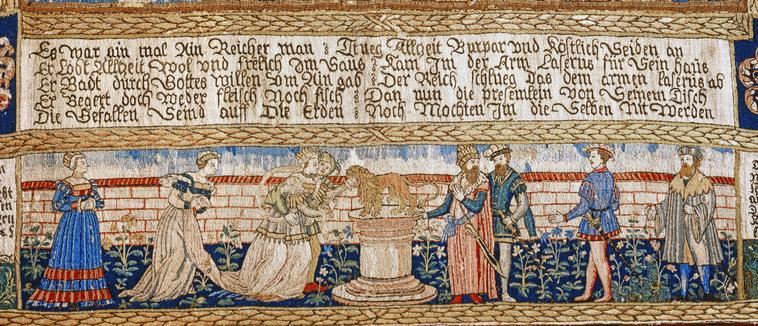 Es war ain mal Ain Reicher man : Trueg Allzeit Burpar vnd Köstlich Seiden an
Er Lebt Allzeit Wol vnd frelich Im Saus : Kam Im der Arm Laserus für Sein haus
Er Badt durch Gottes willen Vm Ain gab : Der Reich schlueg das dem armen laserus ab
Er Begert doch weder fleisch Noch fisch : Dan nun die presemlein Von Seinem Tisch
Die Gefallen Seind auff Die Erden : Noch Mochten Im die Selben Nit Werden